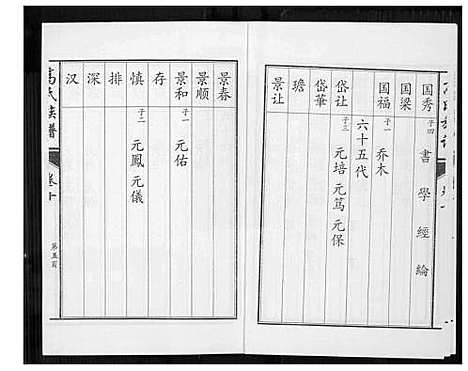 国秀 子四 書 學 經 綸
国梁
国福 子一 乔木
六十五代
岱让 子三 元培 元篤 元保
岱華
瑭
景让
景春
景顺
景和 子一 元佑
存
慎 子二 元鳳 元儀
排
深
汉
高氏族譜
卷十
第五页